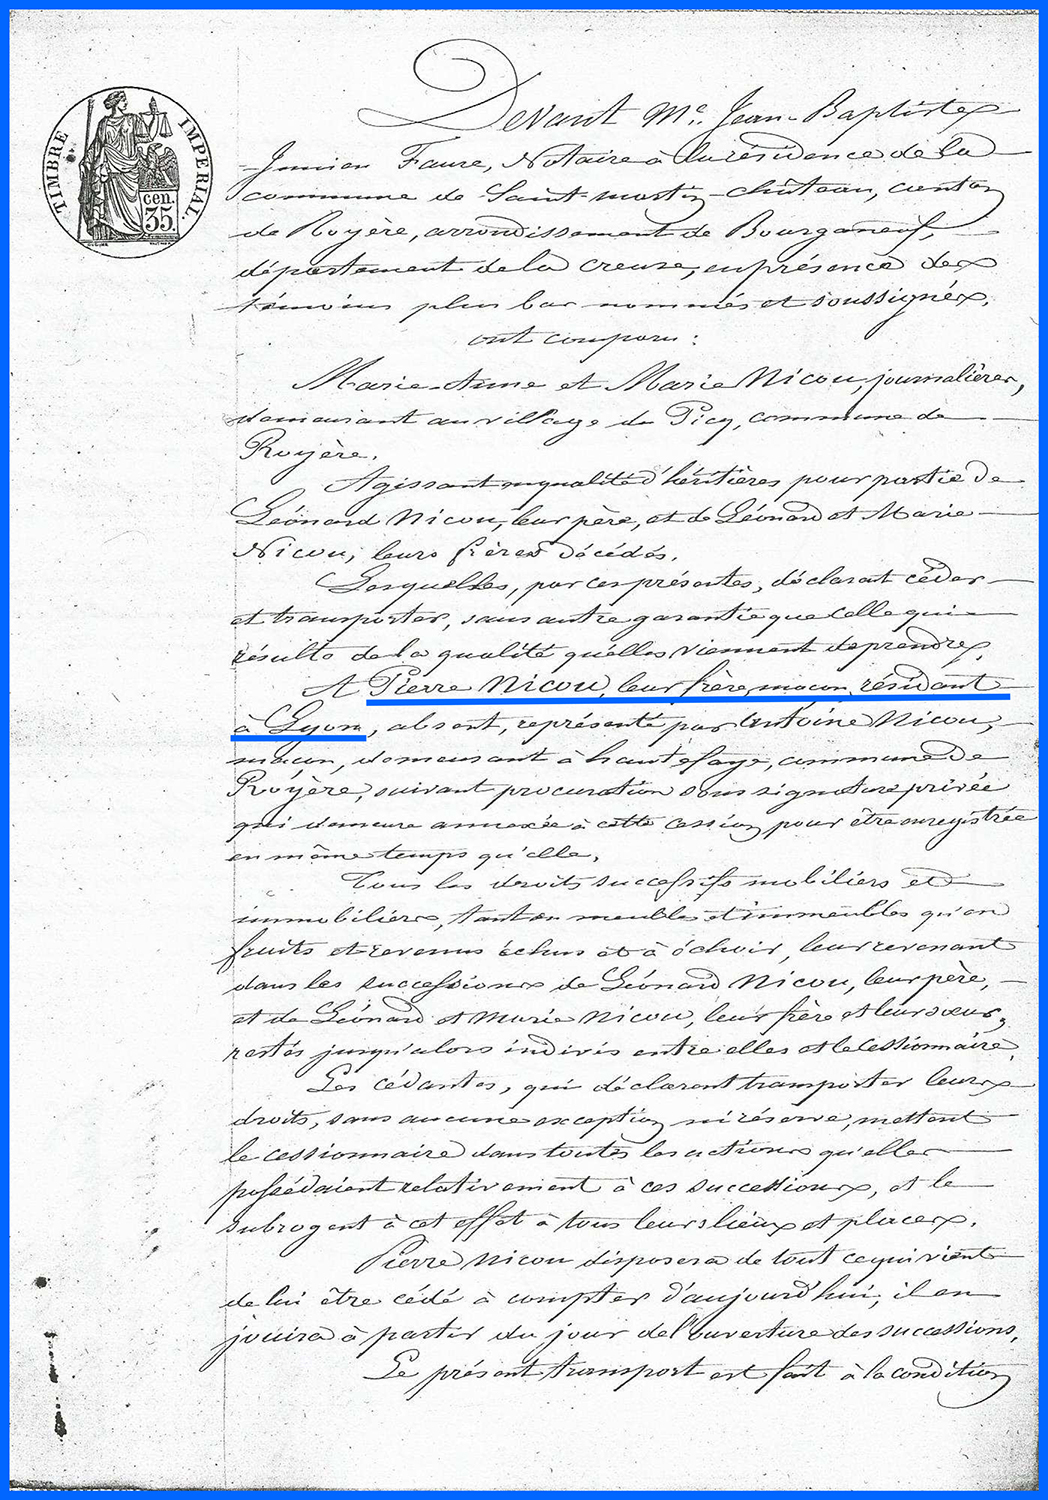 TIMBRE IMPERIAL.
cen.
35.
Devant Me. Jean-Baptiste
Junien Faure, Notaire à la résidence de la
commune de Saint-martin-château, canton
de Royère, arrondissement de Bourganeuf,
département de la Creuse, en présence des
témoins plus bas nommés et soussignés,
ont comparu :
Marie-Anne et Marie Nicou, journalières,
demeurant au village de Picq, commune de
Royère.
Agissant en qualité d'héritières pour partie de
Léonard Nicou, leur père, et de Léonard et Marie
Nicou, leurs frères décédés.
Lesquelles, par ces présentes, déclarent céder
et transporter, sans autre garantie que celle qui
résulte de la qualité qu'elles viennent de prendre,
A Pierre Nicou, leur frère, maçon, résidant
à Lyon, absent, représenté par Antoine Nicou,
maçon, demeurant à hautefaye, commune de
Royère, suivant procuration sous signature privée
qui demeure annexée à cette cession pour être enregistrée
en même temps qu'elle,
Tous les droits successifs mobiliers et
immobiliers, tant en meubles et immeubles qu'en
fruits et revenus échus et à échoir, leur revenant
dans les successions de Léonard Nicou, leur père,
et de Léonard et Marie Nicou, leur frère et leur soeur,
restés jusqu'alors indivis entre elles et le cessionnaire.
Les cédantes, qui déclarent transporter leurs
droits, sans aucune exception ni réserve, mettent
le cessionnaire dans toutes les actions qu'elles
possédaient relativement à ces successions, et le
subrogent à cet effet à tous leurs lieux et places.
Pierre Nicou disposera de tout ce qui vient
de lui être cédé à compter d'aujourd'hui, il en
jouira à partir du jour de l'ouverture des successions.
Le présent transport est fait à la condition